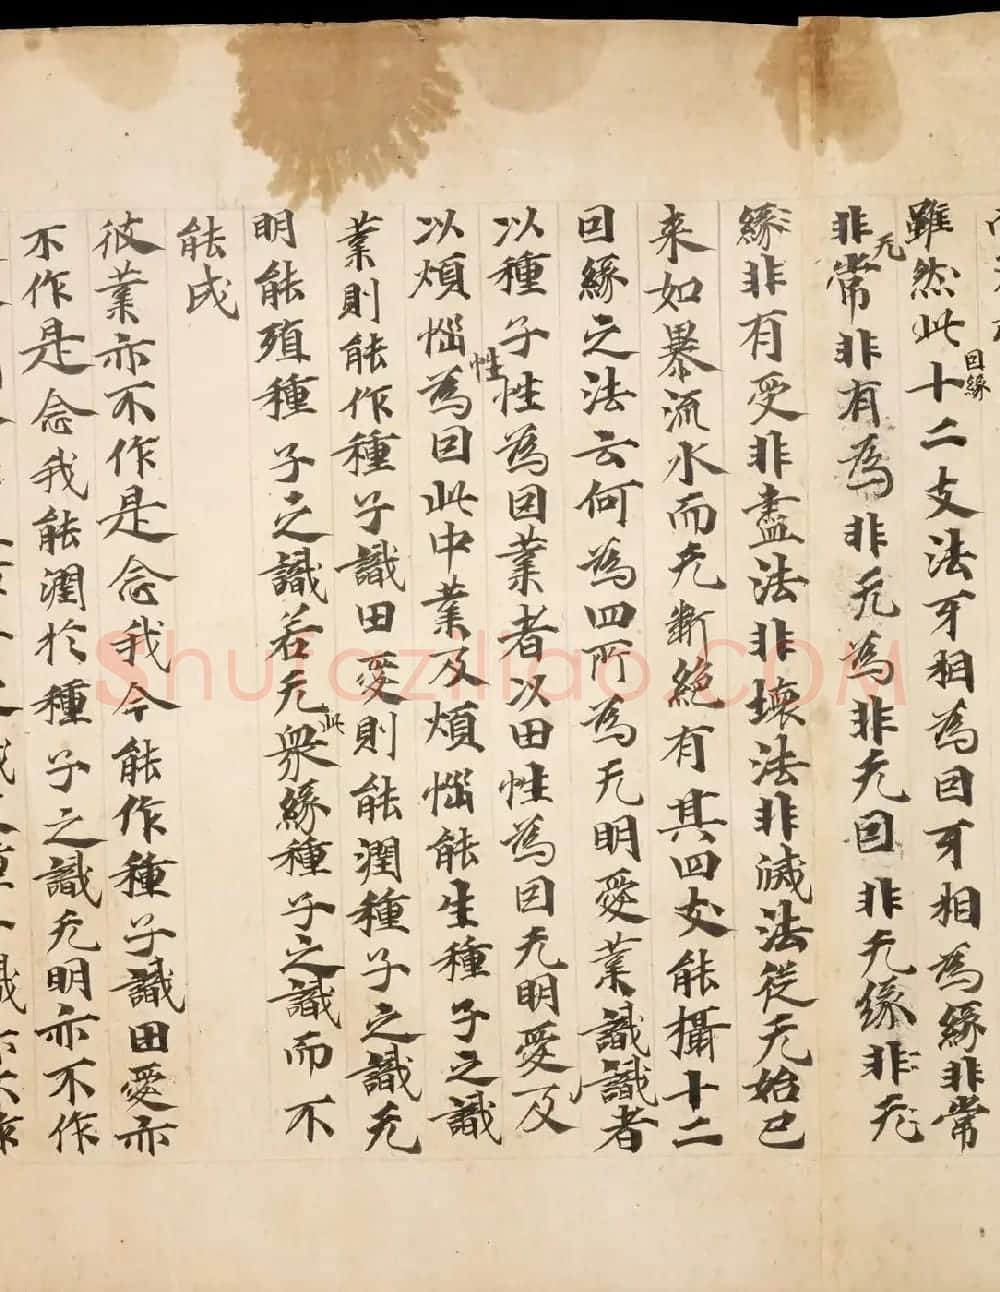 雖然此因緣十二支法牙相為因牙相為緣非常
非无常非有為非无為非无因非无緣非无
緣非有受非盡法非壞法非滅法從无始已
来如暴流水而无斷絕有其四支能攝十二
因緣之法云何為四所為无明愛業識識者
以種子性為因業者以田性為因无明愛及
以煩惱性為因此中業及煩惱能生種子之識
業則能作種子識田愛則能潤種子之識无
明能殖種子之識若无此衆緣種子之識而不
能成
彼業亦不作是念我今能作種子識田愛亦
不作是念我能潤於種子之識无明亦不作
Shufaziliao.COM